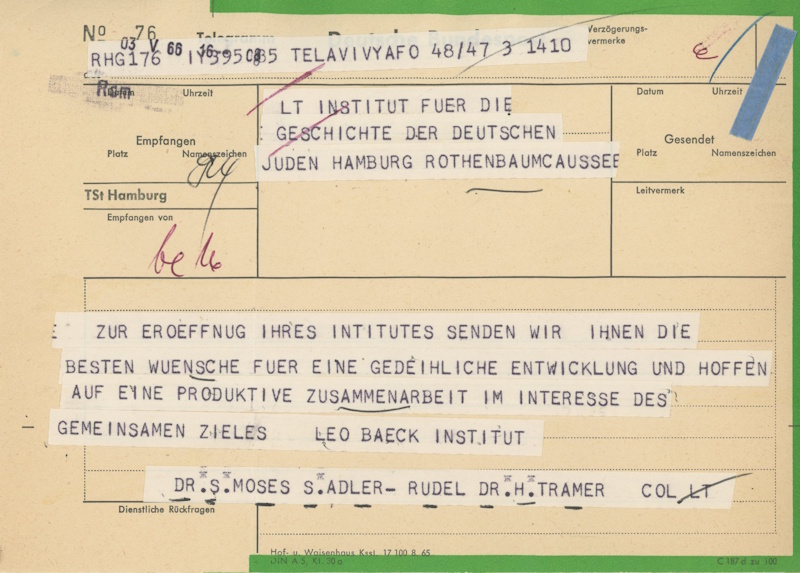 No 76 Telegramm Deutsche Bundespost Verzögerungs-
vermerke
03 V 66 16
RHG176 IY395C85 TELAVIVYAFO 48/47 3 1410
Uhrzeit
Datum Uhrzeit
LT INSTITUT FUER DIE
GESCHICHTE DER DEUTSCHEN
JUDEN HAMBURG ROTHENBAUMCAUSSEE
Empfangen
Platz Namenszeichen
Gesendet
Platz Namenszeichen
TSt Hamburg
Empfangen von
Leitvermerk
ZUR EROEFFNUG IHRES INTITUTES SENDEN WIR IHNEN DIE
BESTEN WUENSCHE FUER EINE GEDEIHLICHE ENTWICKLUNG UND HOFFEN
AUF EINE PRODUKTIVE ZUSAMMENARBEIT IM INTERESSE DES
GEMEINSAMEN ZIELES LEO BAECK INSTITUT
DR.S.MOSES S.ADLER- RUDEL DR.H.TRAMER COL LT
Dienstliche Rückfragen
Hof- u. Waisenhaus Kssl. 17 100 8. 65
DIN A 5, Kl. 30 a
C 187 d zu 100